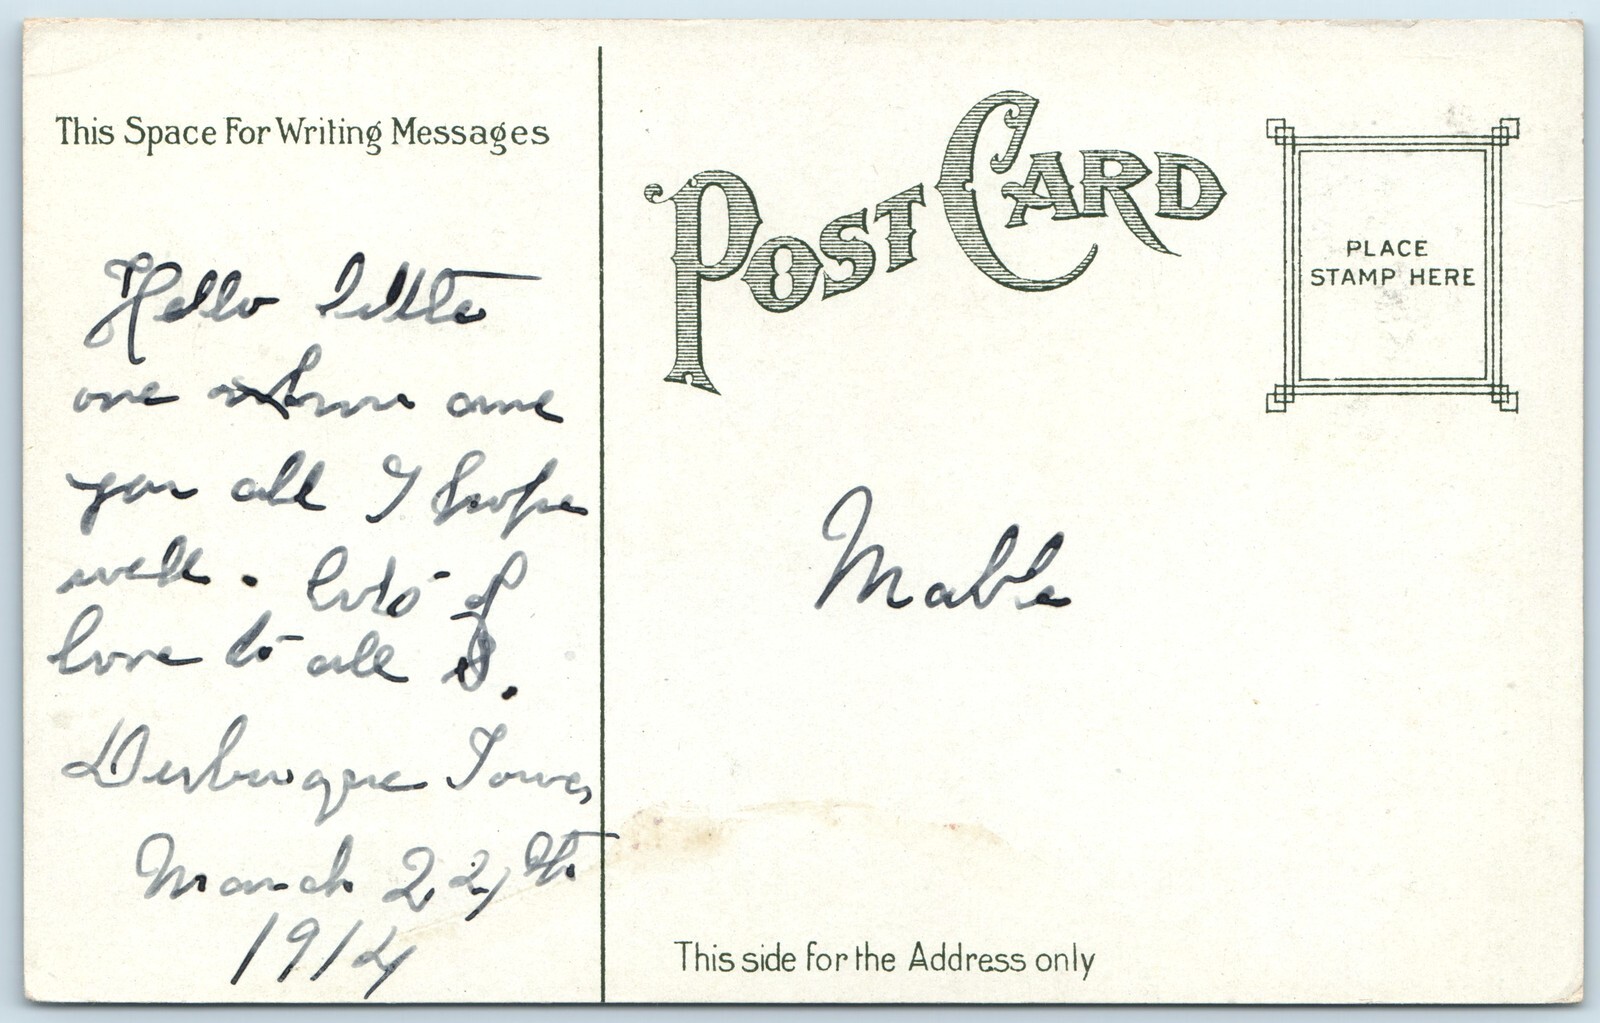 This Space For Writing Messages
Hello little
one how are
you all I hope
well. lots of
love to all S.
Dubuque Iowa,
March 22,th
1914
POST CARD
PLACE
STAMP HERE
Mable
This side for the Address only